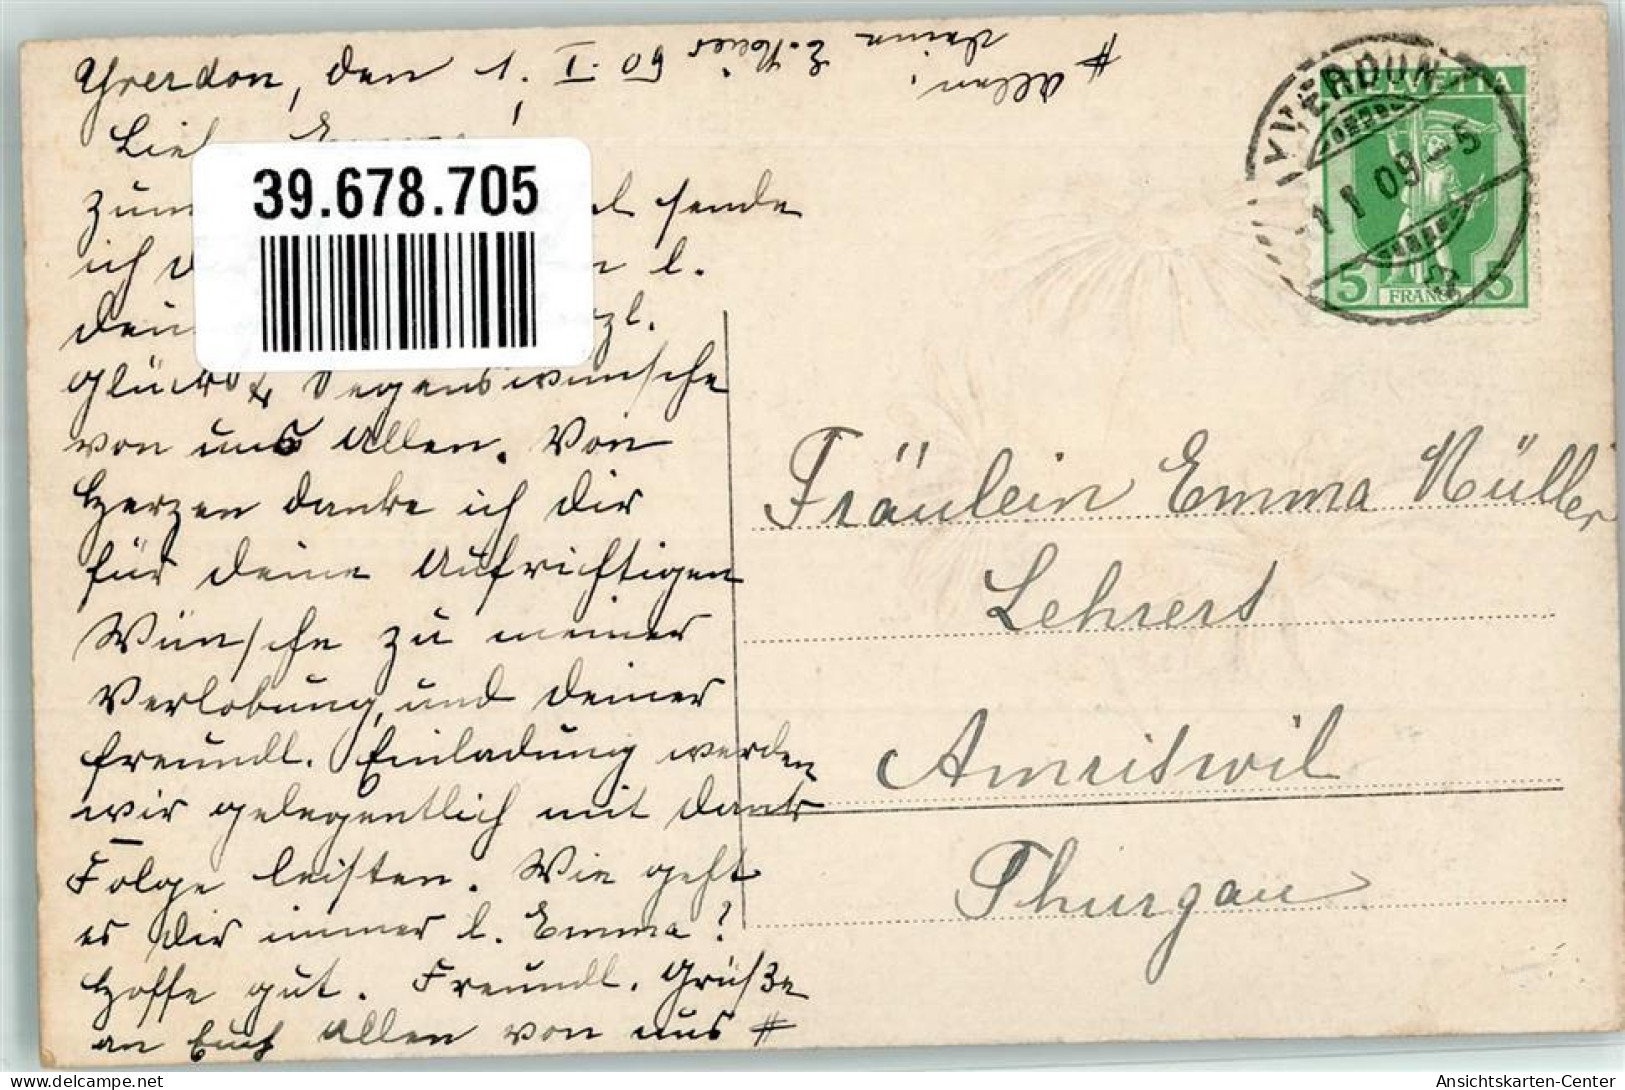 Yverdon, den 1. I. 09
39.678.705
sende
ich
l.
zl.
Glück & Segenswünsche
von uns Allen. Von
Herzen danke ich Dir
für deine Aufrichtigen
Wünsche zu meiner
Verlobung, und Deiner
freundl. Einladung werden
wir gelegentlich mit Dank
Folge leisten. Wie geht
es Dir immer l. Emma?
Hoffe gut. Freundl. Grüße
an Euch Allen von uns #
# Allen.
Deine
YVERDUN
1 I 09 - 5
HELVETIA
5 FRANCO 5
Fräulein Emma Müller
Lehrers
Amriswil
Thurgau
Ansichtskarten-Center
delcampe.net